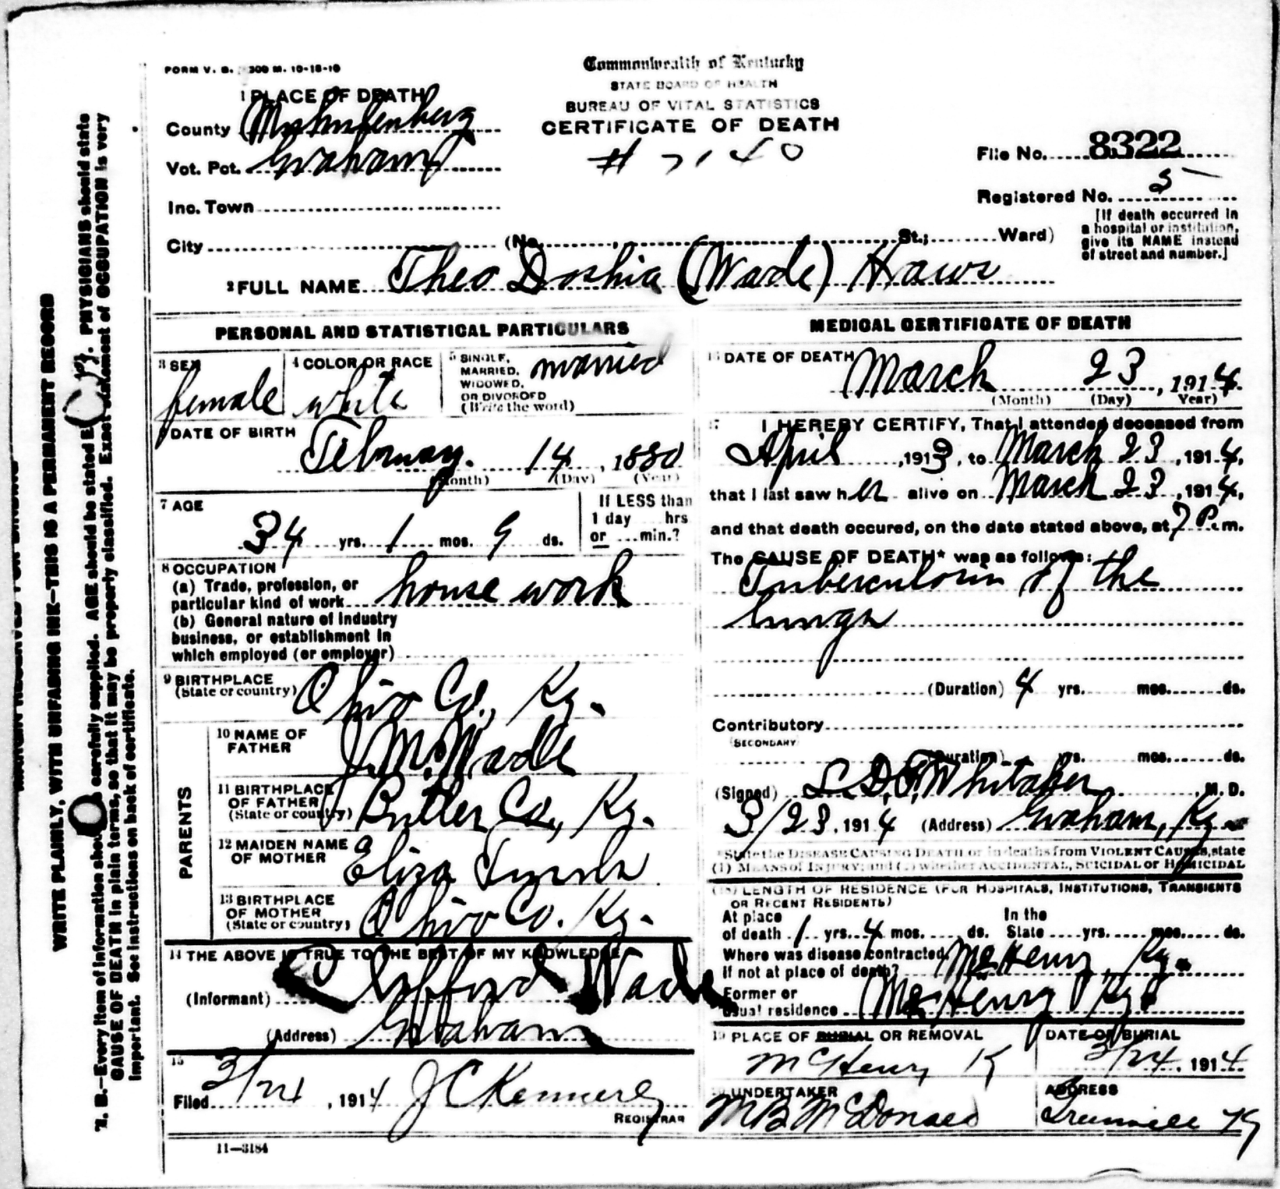 FORM V. S. 300 M. 10-18-10
Commonwealth of Kentucky
STATE BOARD OF HEALTH
BUREAU OF VITAL STATISTICS
CERTIFICATE OF DEATH
1 PLACE OF DEATH
County Muhlenberg
Vot. Pct. Graham
Inc. Town
City (No. St.; Ward)
File No. 8322
Registered No. 5
[If death occurred in
a hospital or institution,
give its NAME instead
of street and number.]
2 FULL NAME Theo Doshia (Wade) Haws
PERSONAL AND STATISTICAL PARTICULARS
3 SEX female
4 COLOR OR RACE white
5 SINGLE, MARRIED, WIDOWED, OR DIVORCED (Write the word) married
6 DATE OF BIRTH
February 14, 1880
(Month) (Day) (Year)
7 AGE
34 yrs. 1 mos. 9 ds.
If LESS than
1 day hrs
or min.?
8 OCCUPATION
(a) Trade, profession, or
particular kind of work house work
(b) General nature of industry
business, or establishment in
which employed (or employer)
9 BIRTHPLACE
(State or country) Ohio Co., Ky.
PARENTS
10 NAME OF
FATHER J. M. Wade
11 BIRTHPLACE
OF FATHER
(State or country) Butler Co., Ky.
12 MAIDEN NAME
OF MOTHER Eliza
13 BIRTHPLACE
OF MOTHER
(State or country) Ohio Co. Ky.
14 THE ABOVE IS TRUE TO THE BEST OF MY KNOWLEDGE
(Informant) Clifford Wade
(Address) Graham
15
Filed 3/24, 1914 J C
REGISTRAR
11—3184
MEDICAL CERTIFICATE OF DEATH
16 DATE OF DEATH March 23, 1914
(Month) (Day) Year)
17 I HEREBY CERTIFY, That I attended deceased from
April, 1913, to March 23, 1914,
that I last saw her alive on March 23, 1914,
and that death occured, on the date stated above, at 7 P. m.
The CAUSE OF DEATH* was as follows:
Tuberculosis of the
lungs
(Duration) 4 yrs. mos. ds.
Contributory
SECONDARY
(Duration) yrs. mos. ds.
(Signed) L. D. F. Whitaker, M. D.
3/23, 1914 (Address) Graham, Ky.
*State the DISEASE CAUSING DEATH or in deaths from VIOLENT CAUSES, state
(1) MEANS OF INJURY; and (2) whether ACCIDENTAL, SUICIDAL OR HOMICIDAL
(18) LENGTH OF RESIDENCE (FOR HOSPITALS, INSTITUTIONS, TRANSIENTS
OR RECENT RESIDENTS)
At place In the
of death 1 yrs. 4 mos. ds. State yrs. mos. ds.
Where was disease contracted,
If not at place of death? McHenry Ky.
Former or
usual residence McHenry Ky.
19 PLACE OF BURIAL OR REMOVAL
McHenry K
DATE OF BURIAL
3/24, 1914
UNDERTAKER
M B McDonald
ADDRESS
Ky
WRITE PLAINLY, WITH UNFADING INK—THIS IS A PERMANENT RECORD
carefully supplied. AGE should be stated PHYSICIANS should state
CAUSE OF DEATH in plain terms, so that it may be properly classified. Exact statement of OCCUPATION is very
important. See instructions on back of certificate.